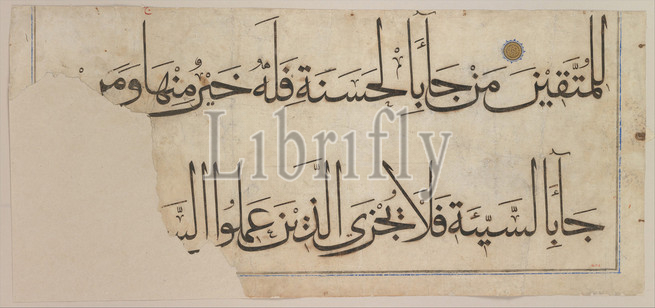 للمتقين من جآء بالحسنة فله خير منها ومن
جآء بالسيئة فلا يجزى الذين عملوا السـ
Librifly